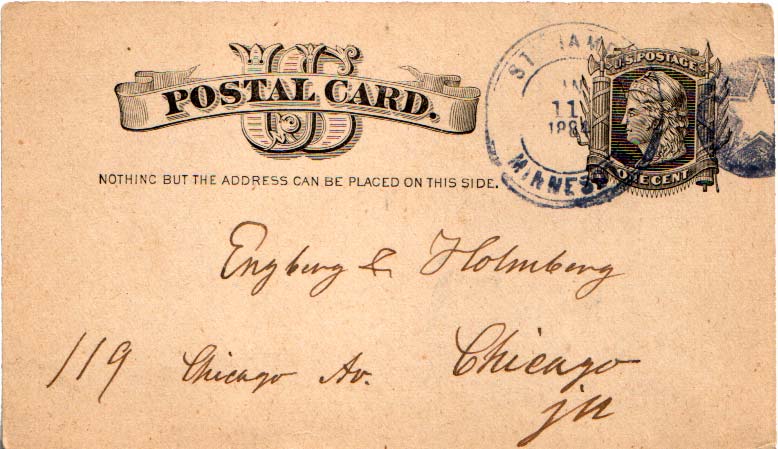 US
POSTAL CARD.
NOTHING BUT THE ADDRESS CAN BE PLACED ON THIS SIDE.
U.S. POSTAGE
ONE CENT
11
Engberg & Holmberg
119 Chicago Av. Chicago